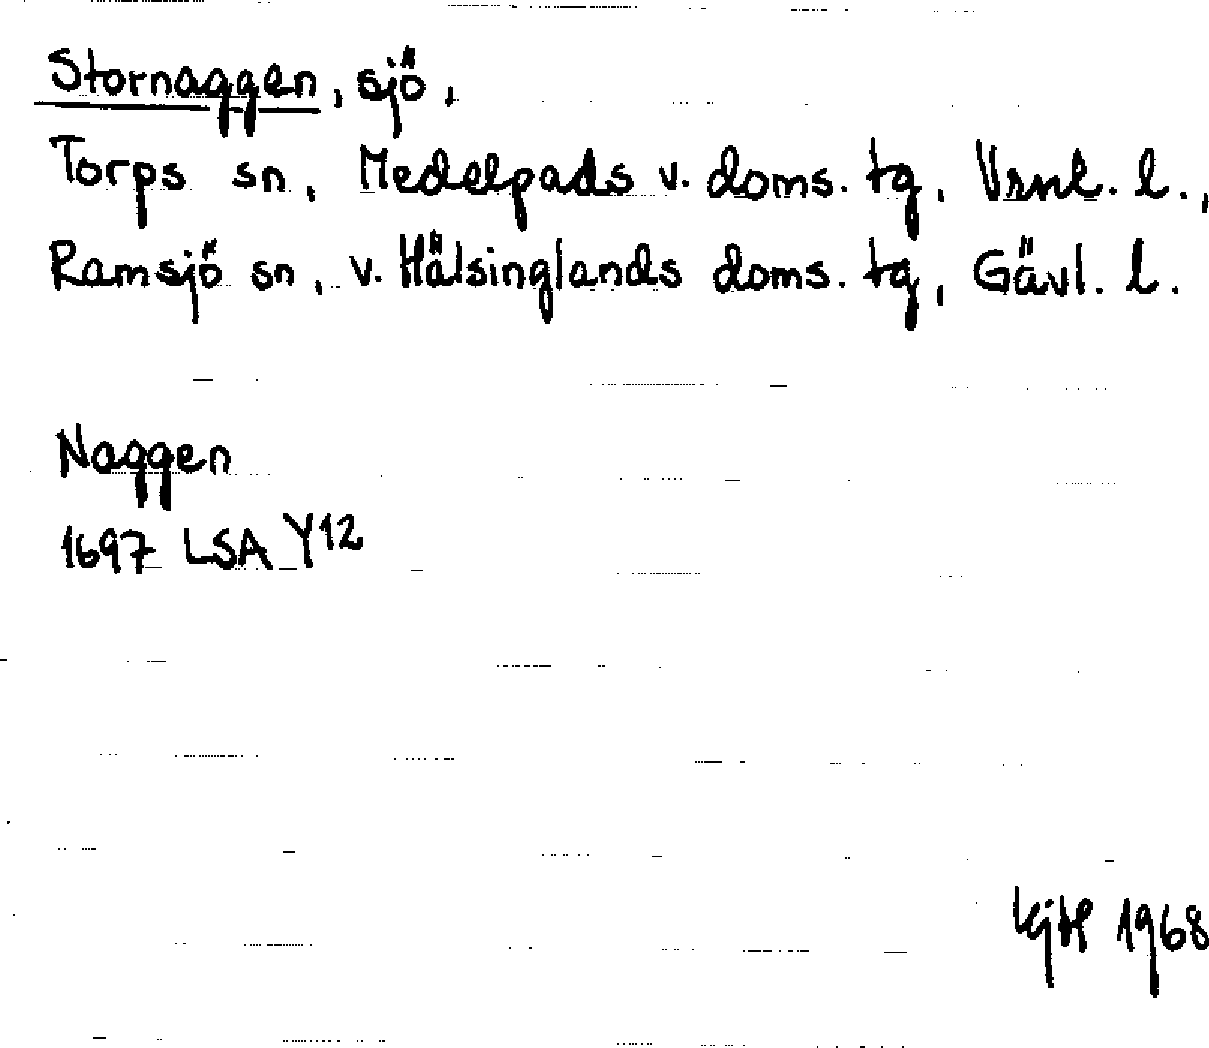 Stornaggen, sjö,
Torps sn, Medelpads v. doms. tg, Vrnl. l.,
Ramsjö sn, v. Hälsinglands doms. tg, Gävl. l.
Naggen
1697 LSA Y12
1968